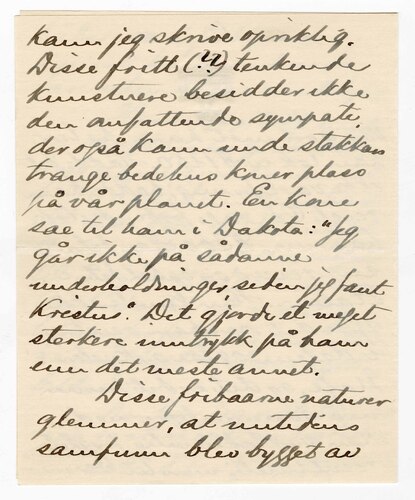 kann jeg skrive opriktig.
Disse fritt (??) tenkende
kunstnere besidder ikke
den omfattende sympati,
der også kann unde stakkars
trange bedehus koner plass
på vår planet. En kone
sae til ham i Dakota: "Jeg
går ikke på sådanne
underholdninger siden jeg fant
Kristus". Det gjorde et meget
sterkere inntrykk på ham
enn det meste annet.
Disse fribaarne naturer
glemmer, at nutidens
samfunn blev bygget av